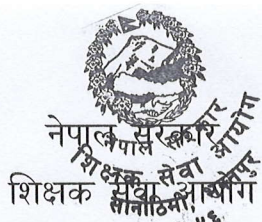 नेपाल सरकार
शिक्षक सेवा आयोग
नेपाल सरकार
शिक्षक सेवा आयोग
सानोठिमी, भक्तपुर